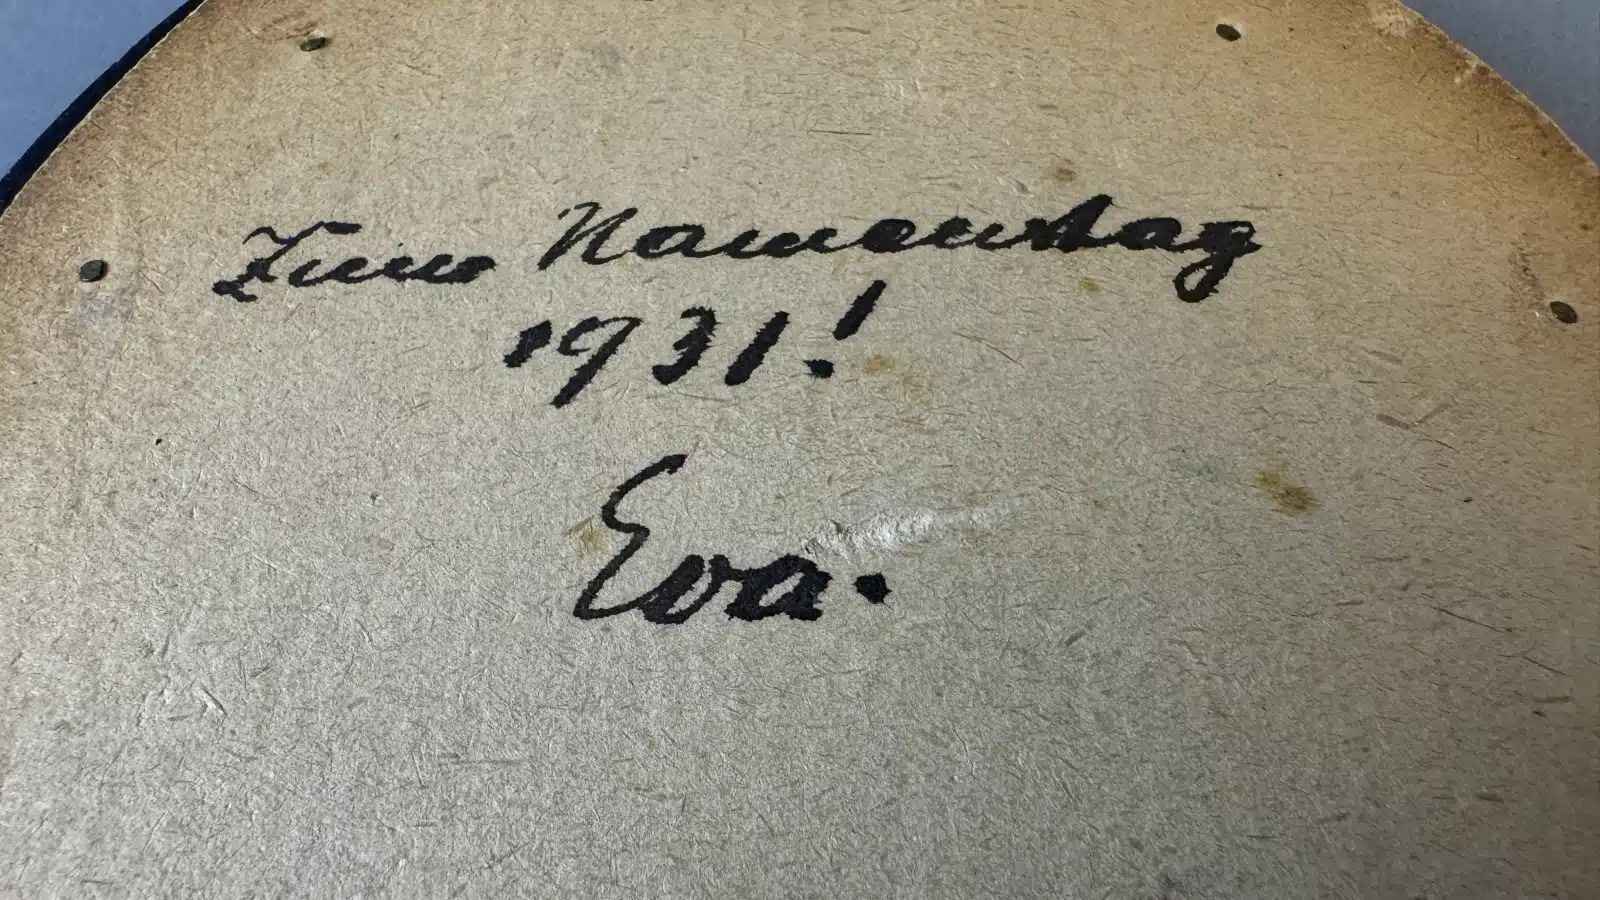 Zum Namenstag
1931!
Eva.